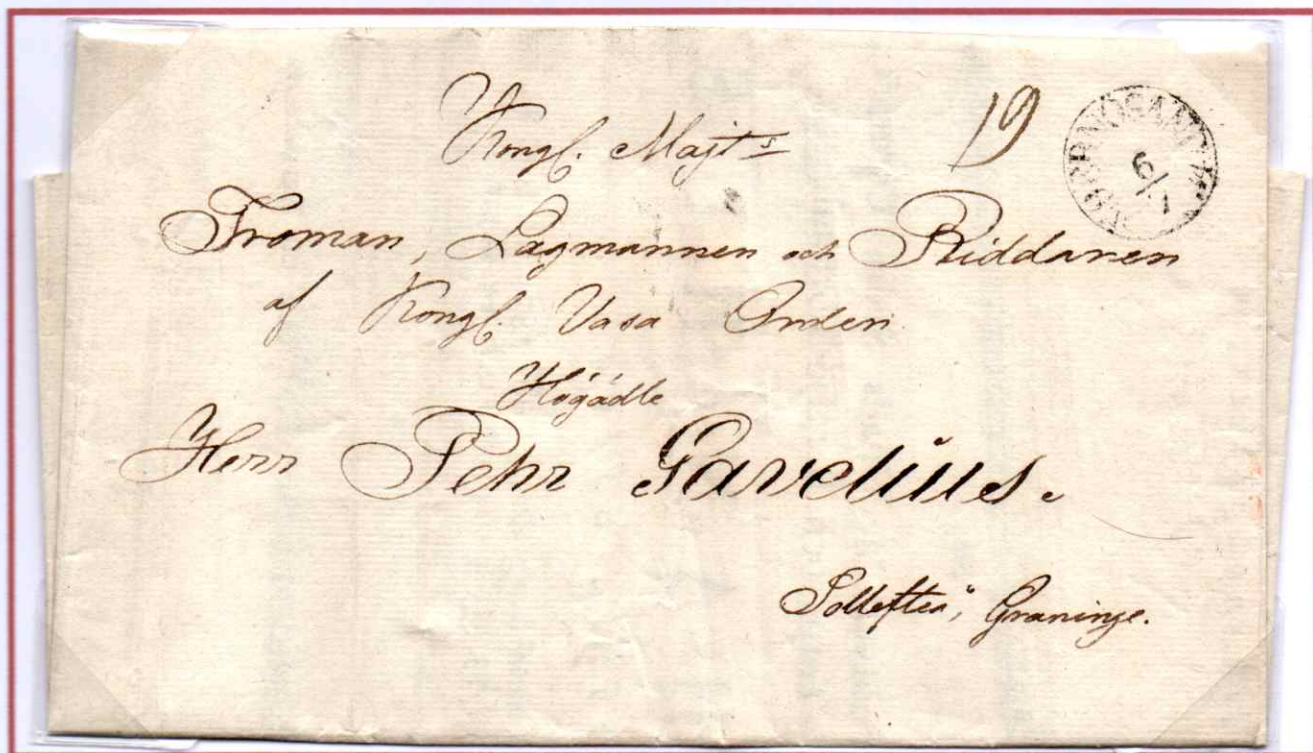 Kongl. Majts
19
HERNÖSAND
6/7
Troman, Lagmannen och Riddaren
af Kongl. Vasa Orden
Högädle
Herr Pehr Gavelius.
Sollefteå, Graninge.